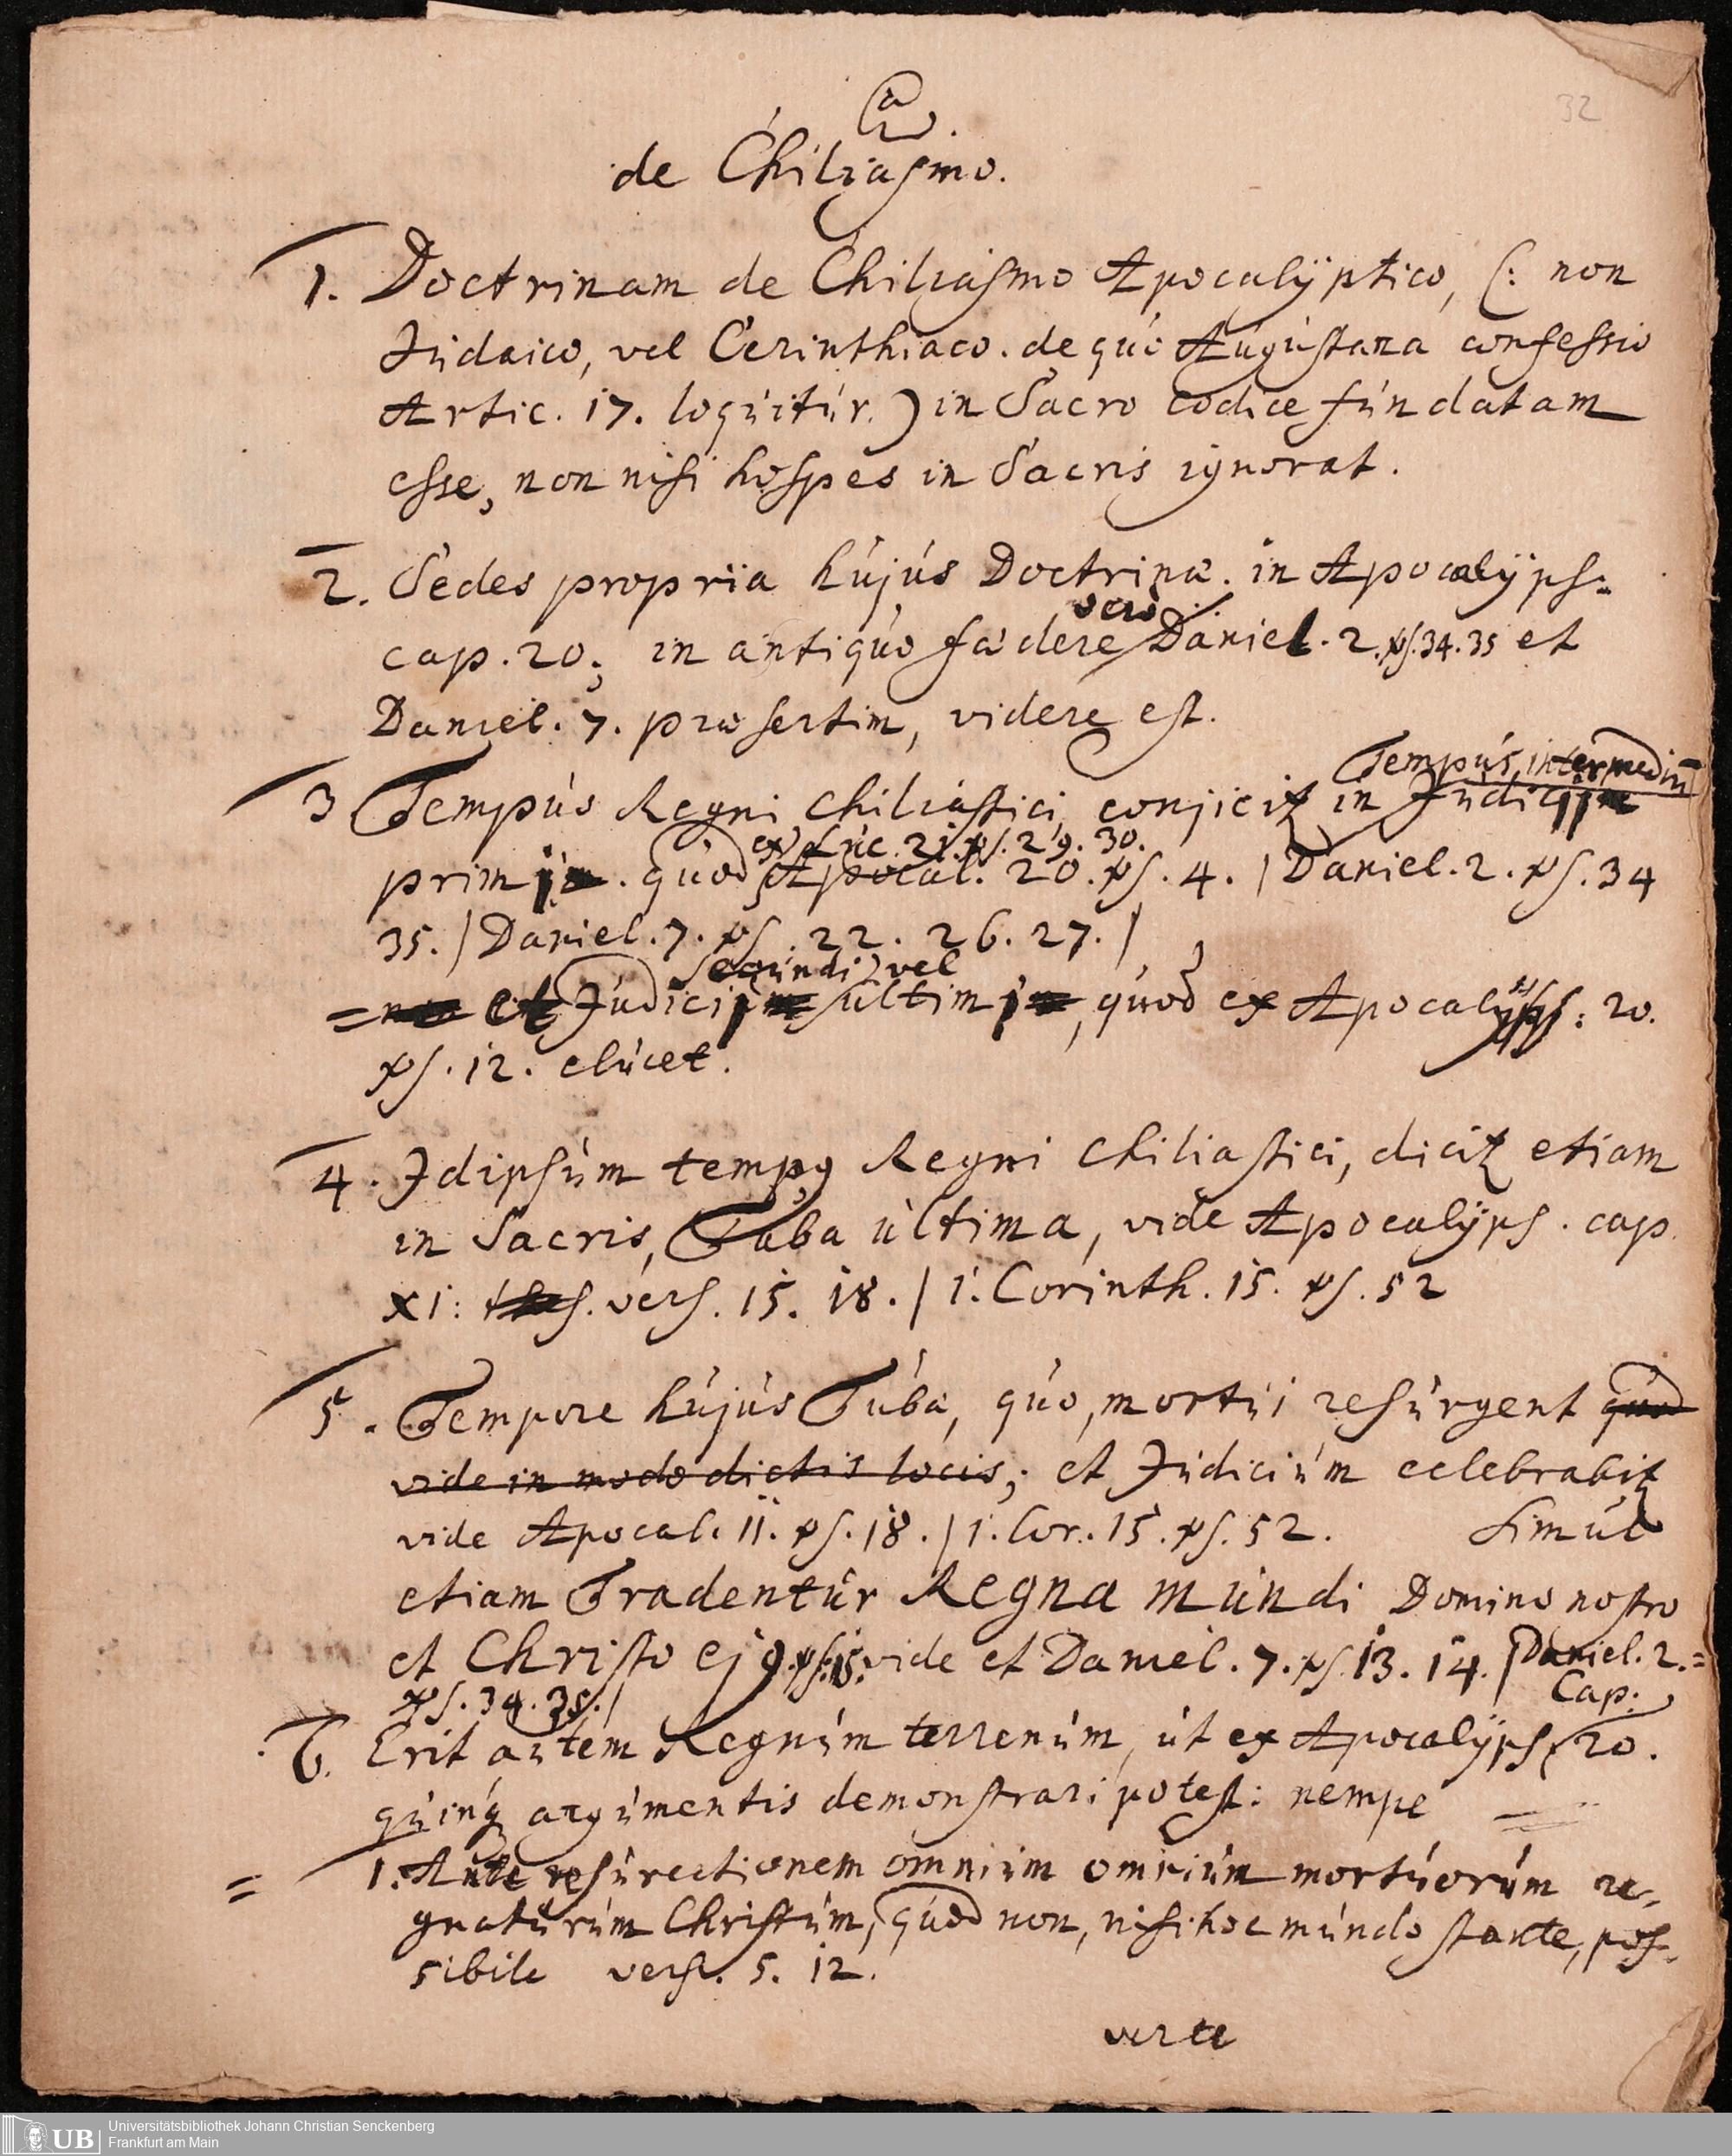 32
de Chiliasmo.
1. Doctrinam de Chiliasmo Apocalÿptico, (: non
Judaico, vel Cerinthiaco. de quo Augustana confessio
Artic. 17. loquitur.) in Sacro codice fundatam
esse, non nisi hospes in Sacris ignorat.
2. Sedes propria hujus Doctrinæ. in Apocalÿps:
vero
cap. 20; in antiquo fœdere Daniel. 2. vs. 34. 35 et
Daniel. 7. præsertim, videre est.
Tempus intermediū
3 Tempus Regni Chiliastici, conjicitur in Judicium
ex Luc. 21. vs. 29. 30.
primum. quod Apocal. 20. vs. 4. / Daniel. 2. vs. 34
35. / Daniel. 7. vs. 22. 26. 27. /
secundi vel
= et Judicium ultimi, quod ex Apocalÿps: 20.
vs. 12. elucet.
4. Idipsum tempus Regni Chiliastici, dicitur etiam
in Sacris, Tuba ultima, vide Apocalÿps. cap.
XI: vers. 15. 18. / 1. Corinth. 15. vs. 52
5. Tempore hujus Tubæ, quo, mortui resurgent quod
vide in modo dictis locis; et Judicium celebrabitur
vide Apocal. 11. vs. 18. / 1. Cor. 15. vs. 52. Simul
etiam Tradentur Regna mundi Domino nostro
et Christo ejus. vs. 15. vide et Daniel. 7. vs. 13. 14. / Daniel. 2. =
vs. 34. 35. /
Cap.
6. Erit autem Regnum terrenum, ut ex Apocalÿps. 20.
quinque argumentis demonstrari potest: nempe
= 1. Ante resurectionem omnium omnium mortuorum re-
gnaturum Christum, quod non, nisi hoc mundo stante, pos-
sibile vers. 5. 12.
verte
UB
Universitätsbibliothek Johann Christian Senckenberg
Frankfurt am Main